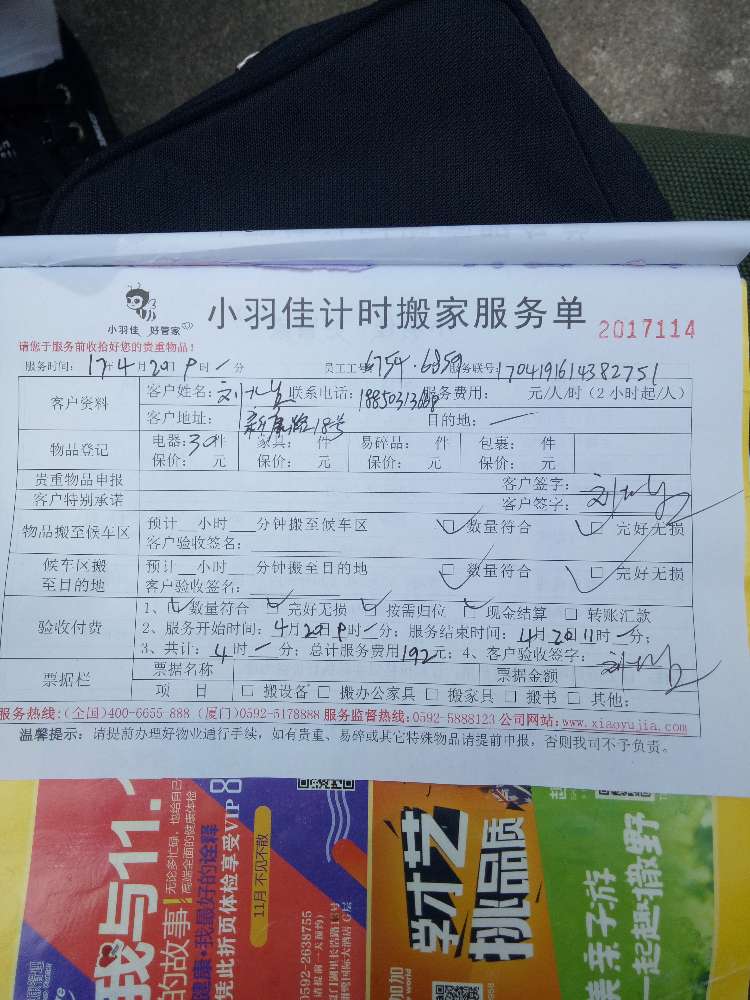 小羽佳 好管家
小羽佳计时搬家服务单
2017114
请您于服务前收拾好您的贵重物品！
服务时间：17年4月20日 时 分 员工工号：6754·6859 服务联号：1704191614382751
客户资料
客户姓名：刘 联系电话： 服务费用： 元/人/时（2小时起/人）
客户地址： 18号 目的地：
物品登记
电器：30件 家具： 件 易碎品： 件 包裹： 件
保价： 元 保价： 元 保价： 元 保价： 元
贵重物品申报 客户签字：
客户特别承诺 客户签字：
物品搬至候车区
预计__小时__分钟搬至候车区 □数量符合 □完好无损
客户验收签名：
候车区搬至目的地
预计__小时__分钟搬至目的地 □数量符合 □完好无损
客户验收签名：
验收付费
1、□数量符合 □完好无损 □按需归位 □现金结算 □转账汇款
2、服务开始时间：4月20日 时 分；服务结束时间：4月20日11时 分；
3、共计：4时 分；总计服务费用192元；4、客户验收签字：
票据栏
票据名称 票据金额
项 目 □搬设备 □搬办公家具 □搬家具 □搬书 □其他：
服务热线：（全国）400-6655-888（厦门）0592-5178888 服务监督热线：0592-5888123 公司网站：www.xiaoyujia.com
温馨提示：请提前办理好物业通行手续，如有贵重、易碎或其它特殊物品请提前申报，否则我司不予负责。
我与11.
的故事！
无论多忙碌，也给自己
高端全面的健康体检
健康·我最好的诠释
凭此折页体检享受VIP 8
11月 不见不散
0592-2638755
（请提前一天预约）
学才艺
挑品质
亲子游
一起趣撒野